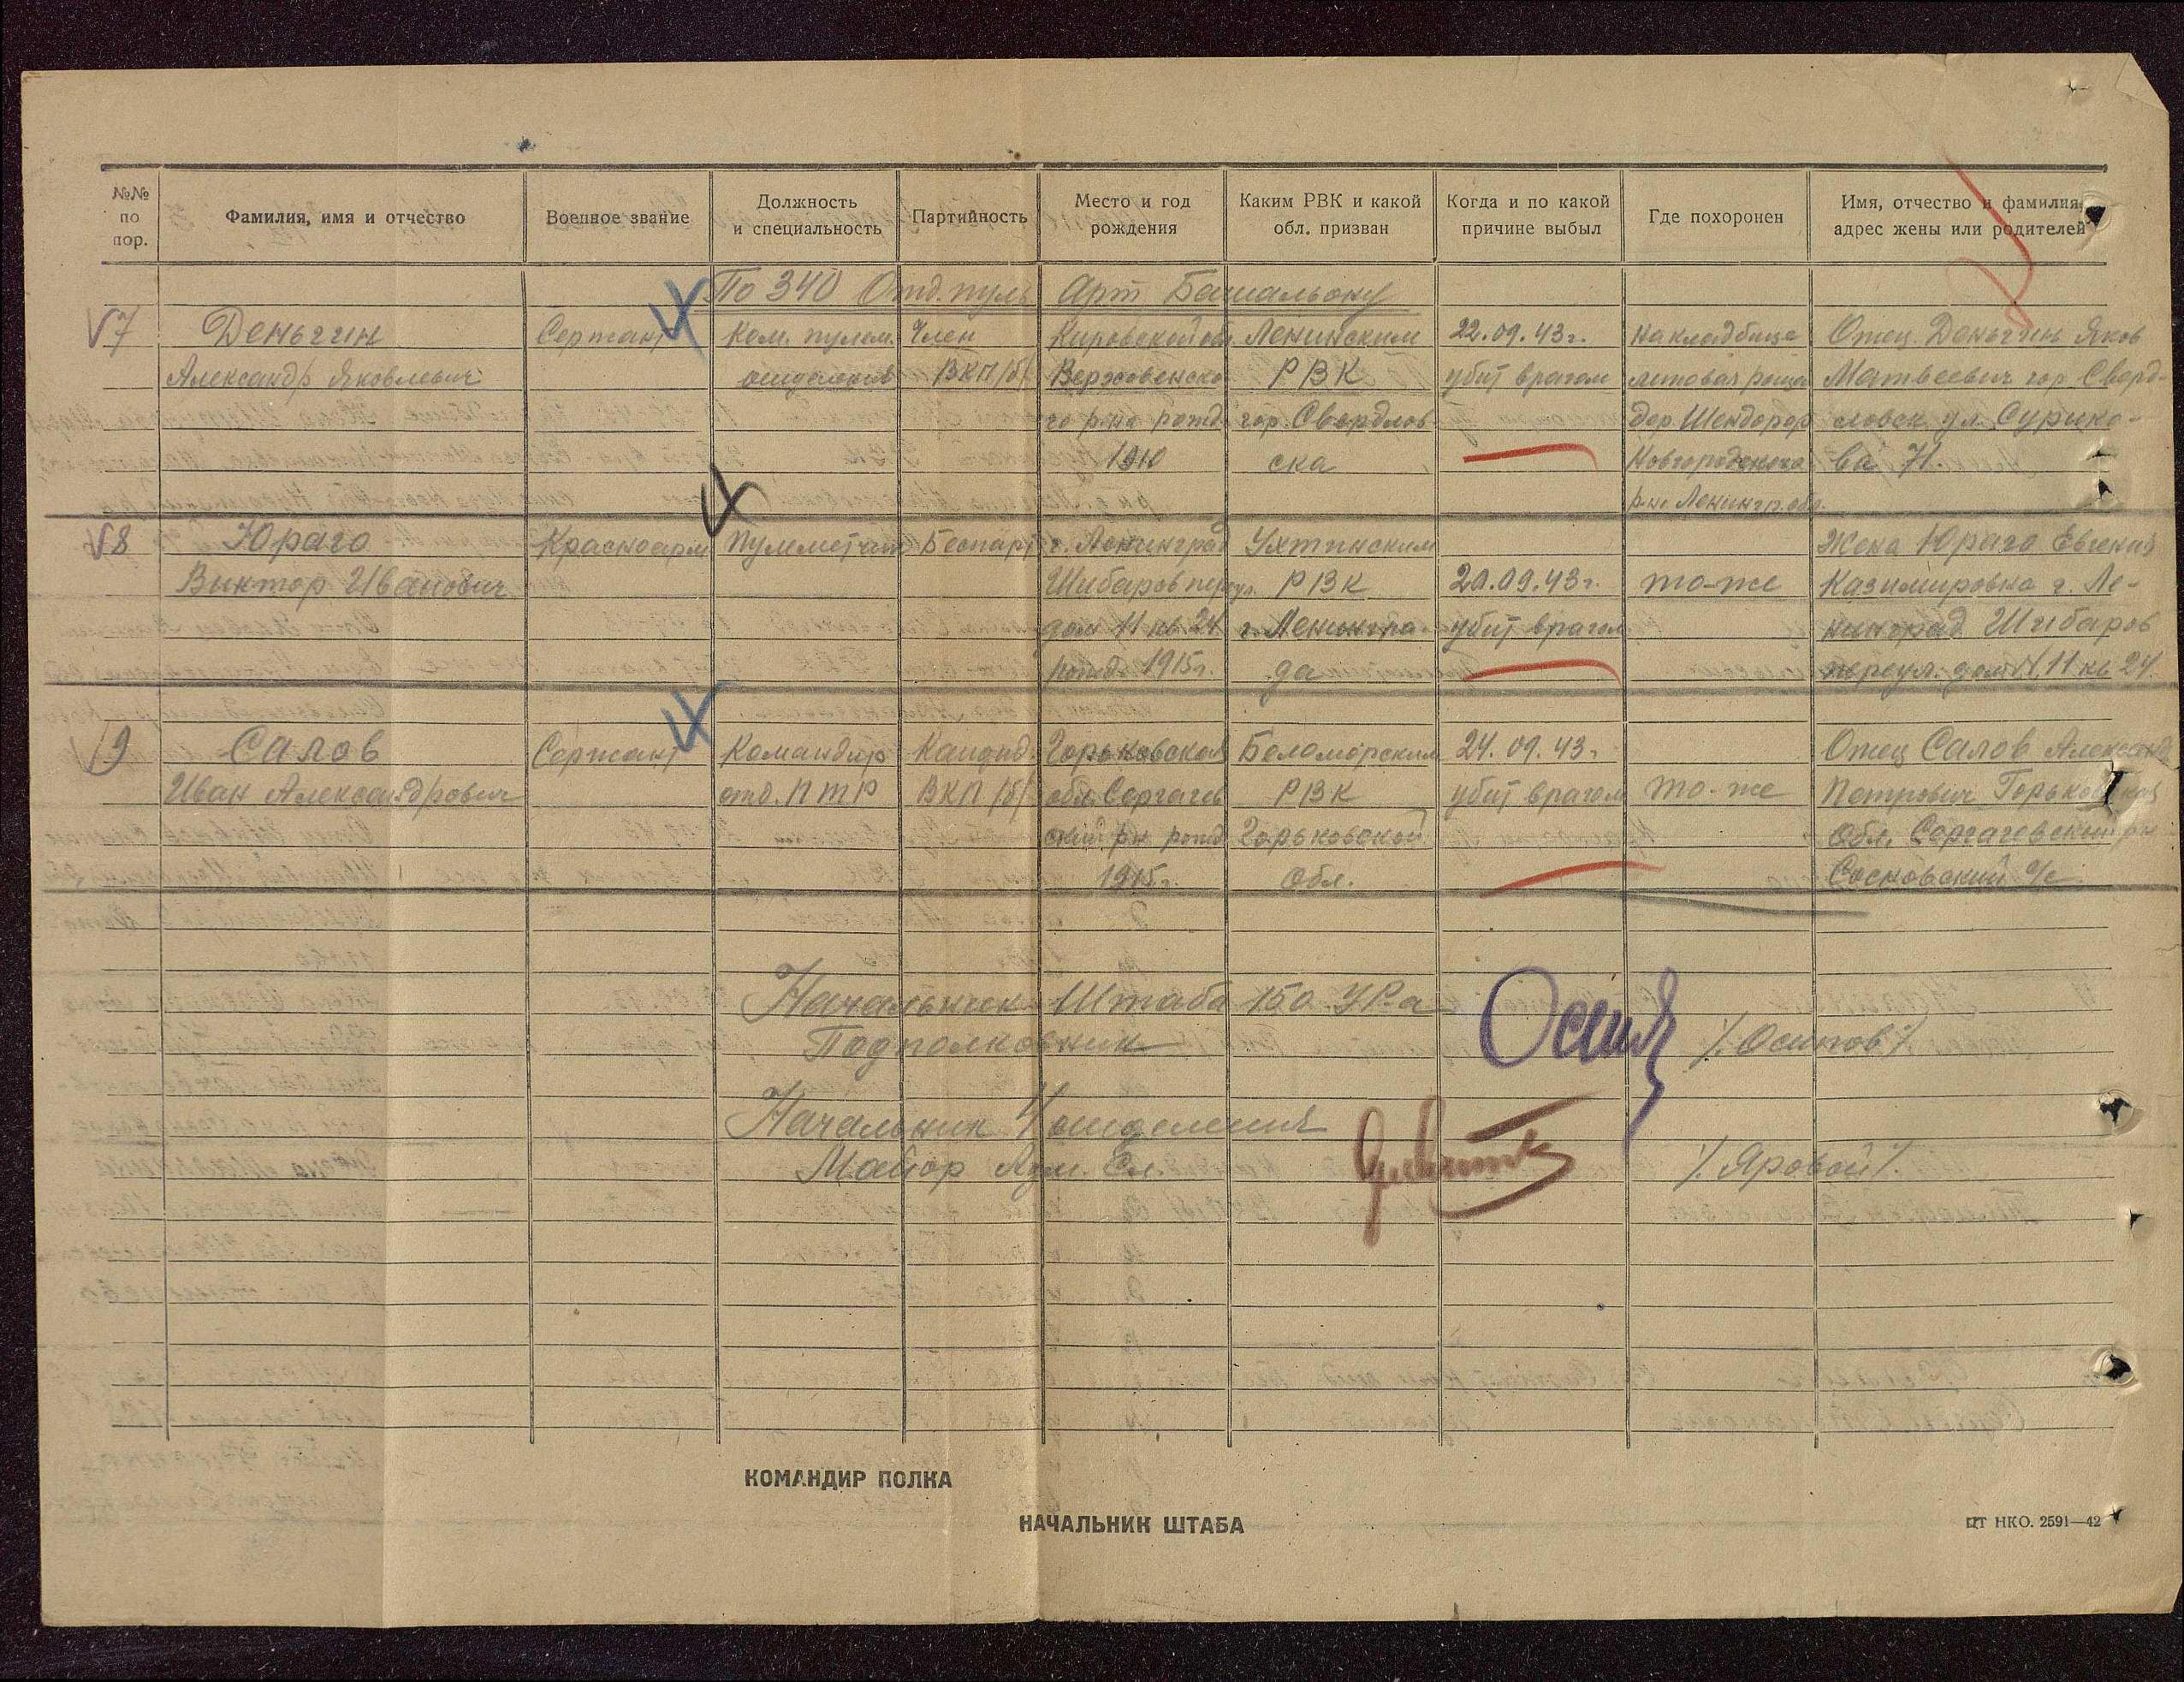 №№ по пор.
Фамилия, имя и отчество
Военное звание
Должность и специальность
Партийность
Место и год рождения
Каким РВК и какой обл. призван
Когда и по какой причине выбыл
Где похоронен
Имя, отчество и фамилия, адрес жены или родителей
По 340 Отд. пуль Арт Батальону
7 Деньгин Сержант Ком. пулем. Член Кировской обл. Ленинским 22.09.43г. На кладбище Отец Деньгин Яков
Александр Яковлевич отделения ВКП/б/ РВК убит врагом Матвеевич гор. Сверд-
го р-на рожд. гор. Свердлов- дер словск ул. Сурико-
1910 ска Новгородского ва 71.
р-на Ленингр. обл.
8 Юраго Красноарм Пулеметчик Беспарт г. Ленинград Ухтинским Жена Юраго Евгения
Виктор Иванович Шибаров переул. РВК 20.09.43г. то-же Казимировна г. Ле-
дом 11 кв. 24 г. Ленингра- убит врагом нинград Шибаров
рожд. 1915г. да переул. дом 11 кв 24
9 Салов Сержант Командир Кандид. Горьковская Беломорским 24.09.43г. Отец Салов Александ
Иван Александрович отд. ПТР ВКП/б/ обл. Сергачев РВК убит врагом то-же Петрович Горьковская
ский р-н рожд Горьковской Обл. Сергачевский рн
1915г. Обл. Сосновский с/с
Начальник Штаба 150 УР-а
Подполковник /Осипов/
Начальник 4 отделения
Майор Адм. Сл. /Яровой/
КОМАНДИР ПОЛКА
НАЧАЛЬНИК ШТАБА
ЦТ НКО. 2591—42